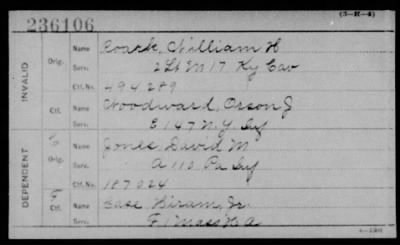 236106
(3-H-4)
INVALID
Orig. Name Roark, William H
Serv. 2 Lt M 17 Ky Cav
Ctf. No. 494289
Ctf. Name Woodward, Orson J
Serv. E 147 N.Y. Inf
DEPENDENT
Orig. Name Jones, David M
Serv. A 110 Pa Inf
Ctf. No. 187024
Ctf. Name Case, Hiram, Jr.
Serv. F 1 Mass H A